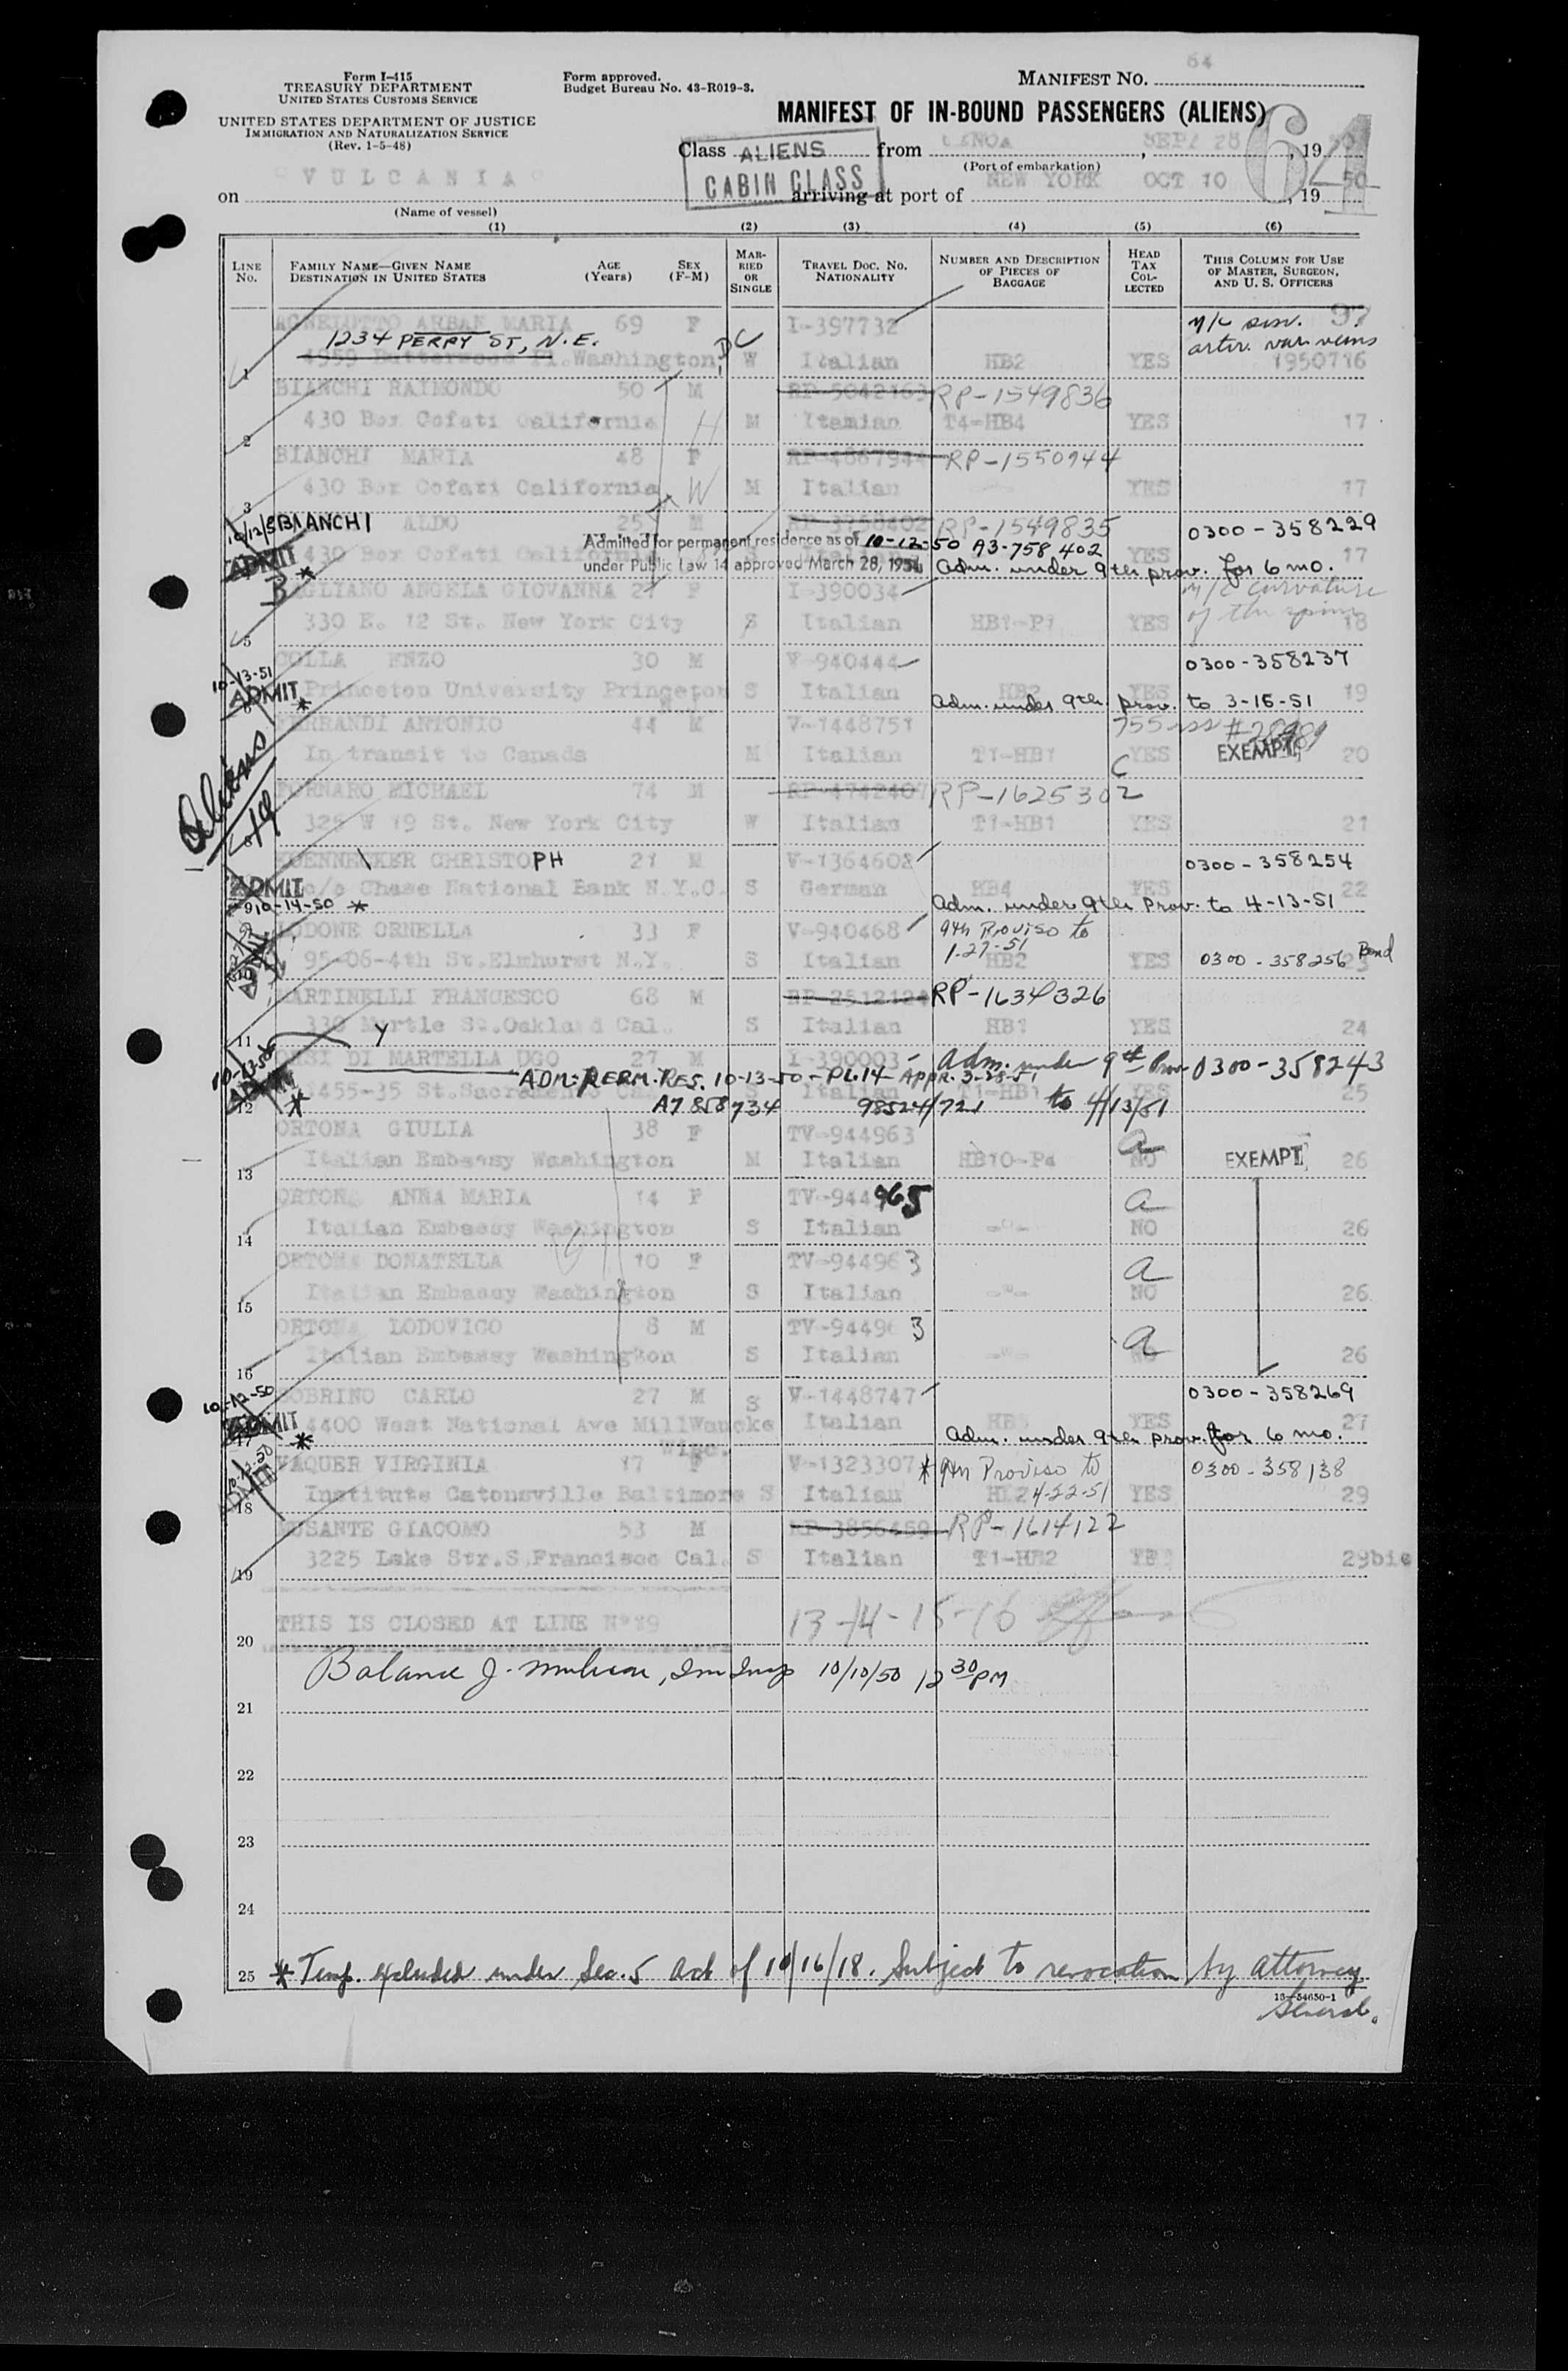 Form I-415
TREASURY DEPARTMENT
UNITED STATES CUSTOMS SERVICE
UNITED STATES DEPARTMENT OF JUSTICE
IMMIGRATION AND NATURALIZATION SERVICE
(Rev. 1-5-48)
Form approved.
Budget Bureau No. 43-R019-3.
MANIFEST NO. 64
MANIFEST OF IN-BOUND PASSENGERS (ALIENS)
64
Class ALIENS from GENOA, SEPT 28, 19 50
CABIN CLASS
(Port of embarkation)
on "VULCANIA" arriving at port of NEW YORK OCT 10, 19 50
(Name of vessel)
(1) (2) (3) (4) (5) (6)
LINE NO. FAMILY NAME—GIVEN NAME DESTINATION IN UNITED STATES AGE (Years) SEX (F-M) MARRIED OR SINGLE TRAVEL DOC. NO. NATIONALITY NUMBER AND DESCRIPTION OF PIECES OF BAGGAGE HEAD TAX COLLECTED THIS COLUMN FOR USE OF MASTER, SURGEON, AND U. S. OFFICERS
ARBAN MARIA 69 F I-397732 97
1234 PERRY ST, N.E. DC
1 4959 Pl. Washington W Italian HB2 YES 1950716
arter. var. veins
BIANCHI RAIMONDO 50 M RP-5042163 RP-1549836
2 430 Box Cofati California H M Itamian T4-HB4 YES 17
BIANCHI MARIA 48 F RP-1550944
3 430 Box Cofati California W M Italian YES 17
10/12/50 BIANCHI ALDO 25 M RP-3758402 RP-1549835 0300-358229
ADMIT 430 Box Cofati California YES 17
Admitted for permanent residence as of 10-12-50 A3-758 402
under Public Law 14 approved March 28, 1951 Adm. under 9th prov. for 6 mo.
ANGELA GIOVANNA 27 F I-390034 curvature
5 330 E. 12 St. New York City S Italian HB1-P1 YES of the spine 18
COLLA ENZO 30 M V-940444 0300-358237
10-13-51 ADMIT * Princeton University Princeton N.J. S Italian HB2 YES 19
Adm. under 9th prov. to 3-15-51
FERRANDI ANTONIO 44 M V-1448751
In transit to Canada M Italian T1-HB1 C YES EXEMPT 20
Aliens
19
FORNARO MICHAEL 74 M RP-4742407 RP-1625302
8 325 W 19 St. New York City W Italian T1-HB1 YES 21
CHRISTOPH 21 M V-1364602 0300-358254
ADMIT c/o Chase National Bank N.Y.C. S German HB4 YES 22
9 10-14-50 * Adm. under 9th Prov. to 4-13-51
LODONE ORNELLA 33 F V-940468 9th Proviso to
1-27-51
95-06-4th St. Elmhurst N.Y S Italian HB2 YES 0300-358256 Bond 23
MARTINELLI FRANCESCO 68 M RP-2512124 RP-1634326
11 339 Myrtle St. Oakland Cal. S Italian HB1 YES 24
Y
DI MARTELLA UGO 27 M I-390003 Adm. under 9th Prov 0300-358243
ADM. PERM. RES. 10-13-50 - PL.14 - APPR. 3-28-51
12 * 1455-35 St. Sacramento Italian T1-HB1 YES 25
A7 858 734 98524/721 to 4/13/51
ORTONA GIULIA 38 F TV-944963 a
13 Italian Embassy Washington M Italian HB10-P4 NO EXEMPT 26
ORTONA ANNA MARIA 14 F TV-944965 a
14 Italian Embassy Washington S Italian -"- NO 26
ORTONA DONATELLA 10 F TV-944963 a
15 Italian Embassy Washington S Italian -"- NO 26
ORTONA LODOVICO 8 M TV-944963 a
16 Italian Embassy Washington S Italian -"- NO 26
10-12-50 SOBRINO CARLO 27 M S V-1448747 0300-358269
ADMIT 4400 West National Ave MillWaucke Wisc. Italian YES 27
17 * Adm. under 9th prov. for 6 mo.
VAQUER VIRGINIA 17 F V-1323307 * 9th Proviso to 0300-358138
18 Institute Catonsville Baltimore S Italian HB2 4-22-51 YES 29
MUSANTE GIACOMO 53 M RP-3856469 RP-1614122
19 3225 Lake Str. S. Francisco Cal. S Italian T1-HB2 YES 29bis
20 THIS IS CLOSED AT LINE N°19 13-14-15-16
Balance J. 10/10/50 12 30 PM
21
22
23
24
25 * Temp. excluded under Sec. 5 Act of 10/16/18. Subject to revocation by Attorney
16—54650-1
General.